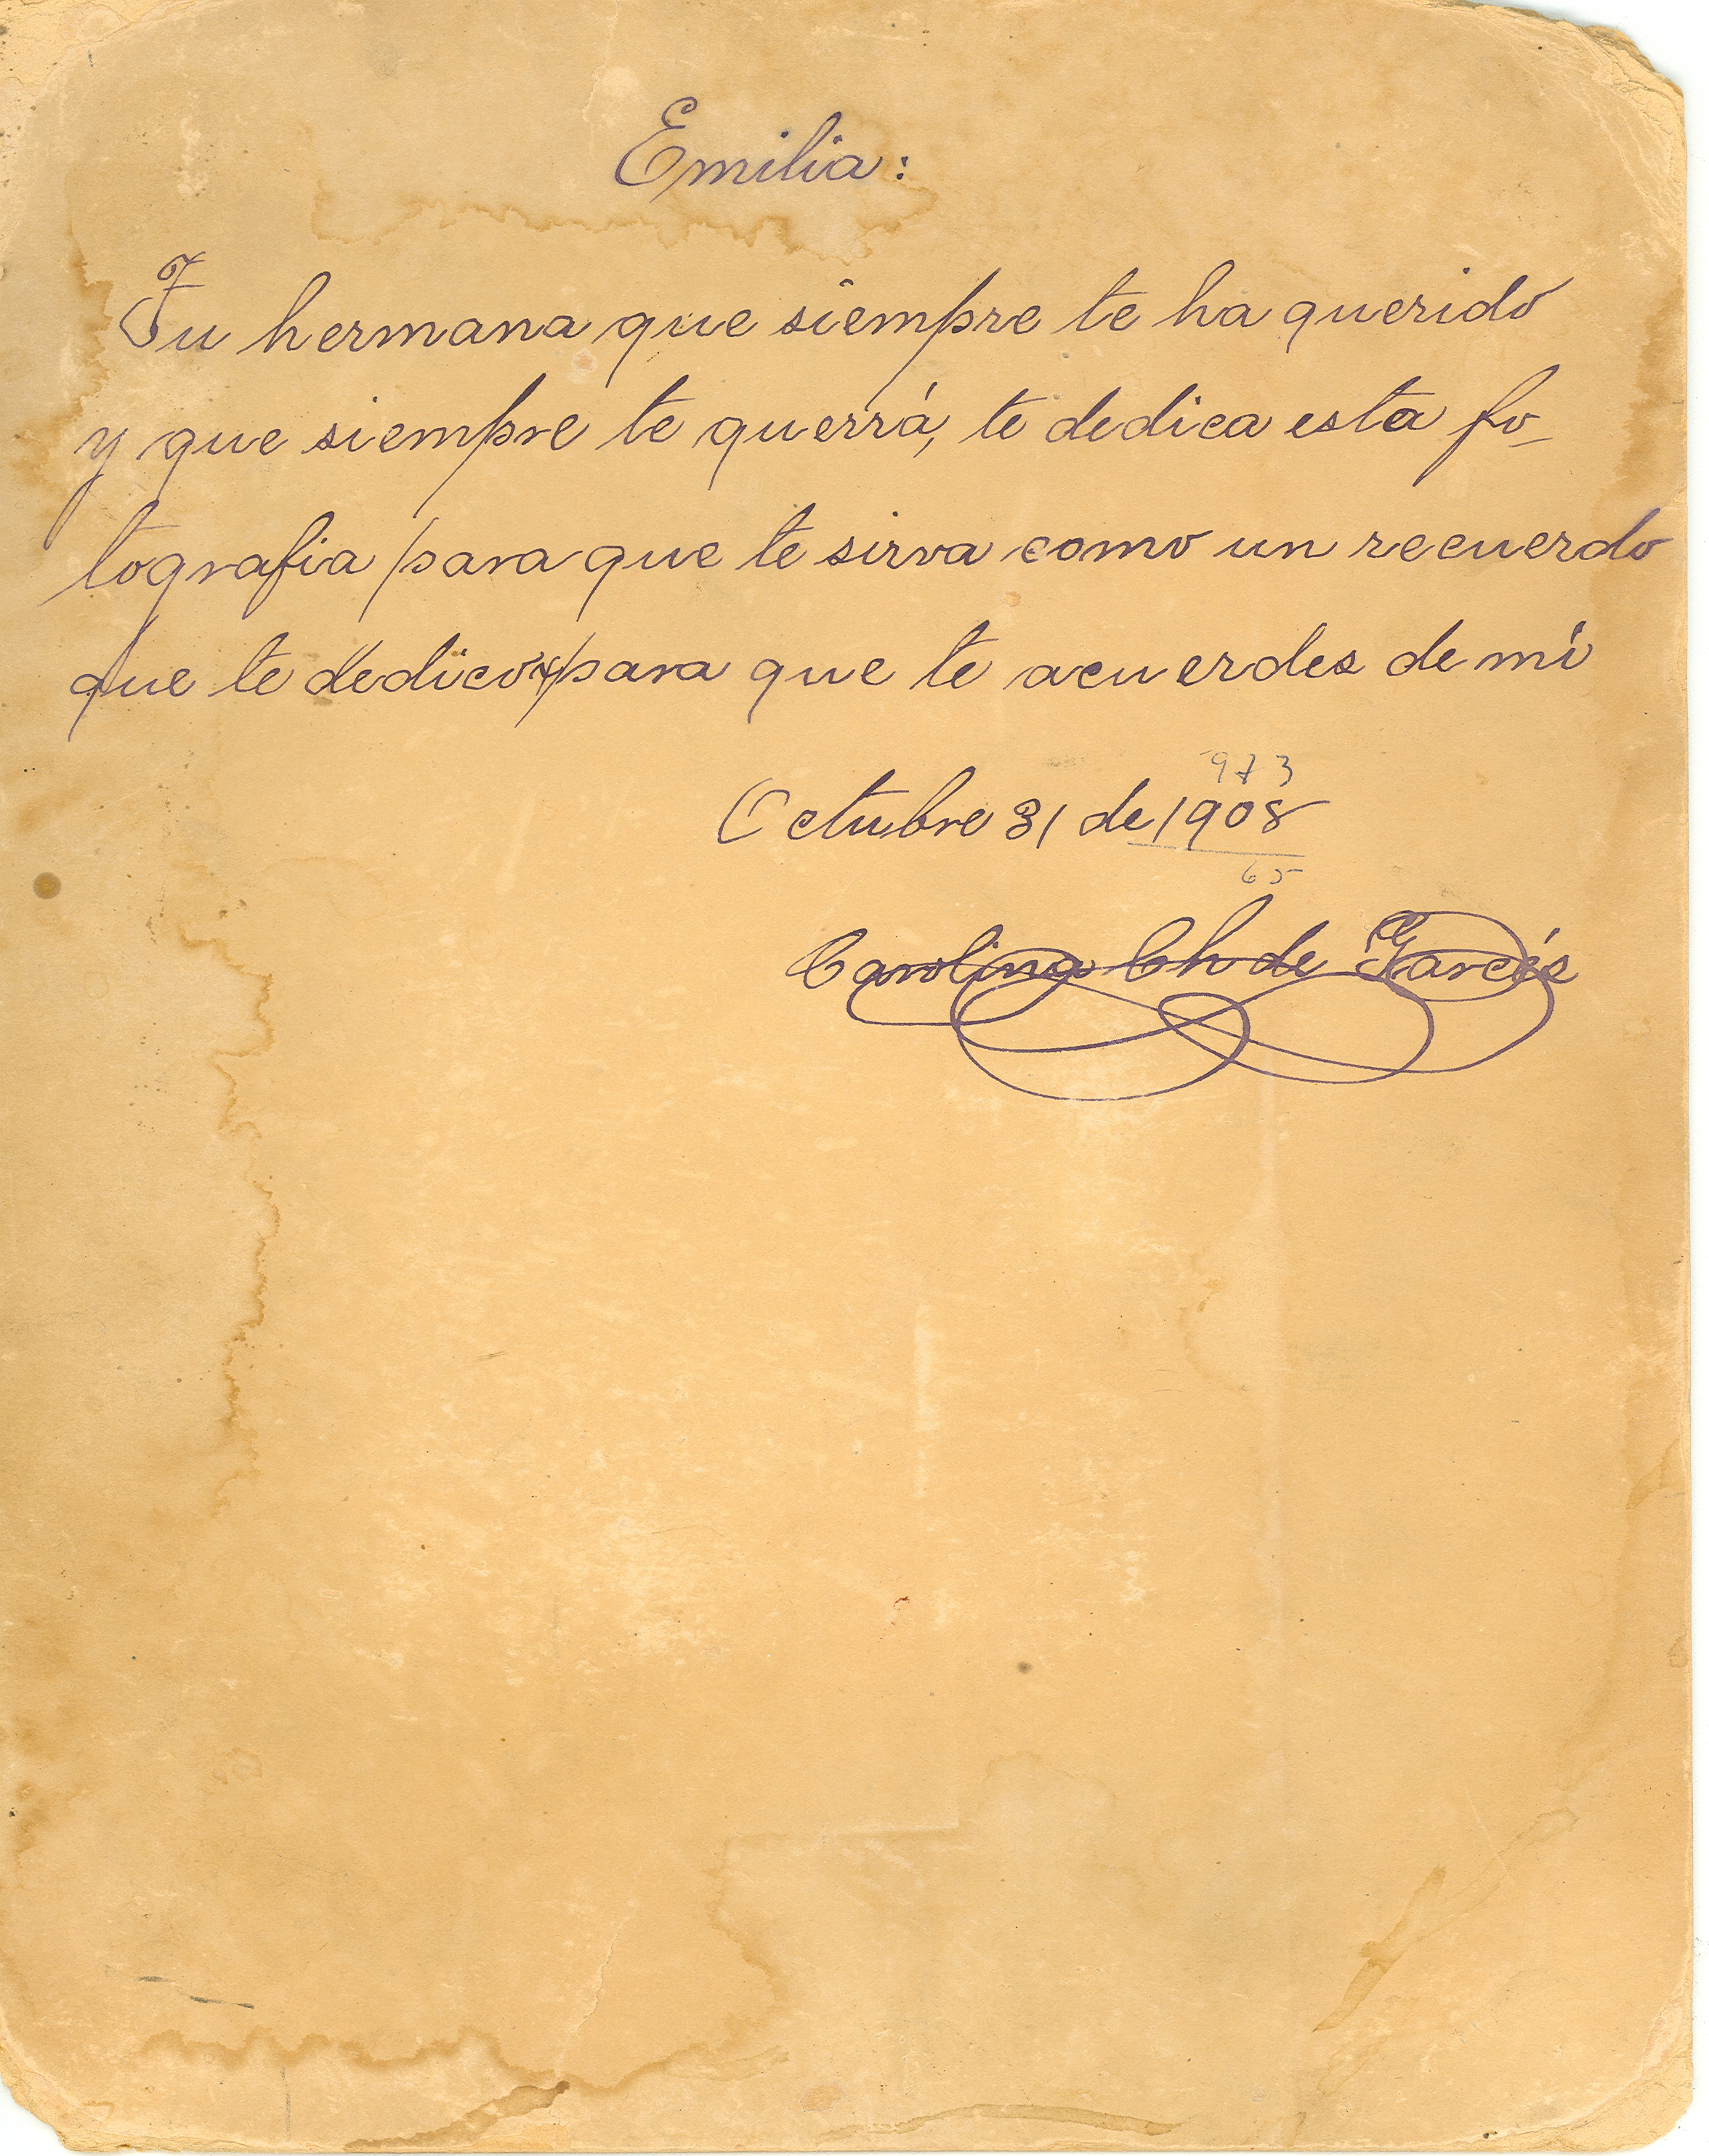 Emilia:
Tu hermana que siempre te ha querido
y que siempre te querrá, te dedica esta fo-
tografia para que te sirva como un recuerdo
que te dedico para que te acuerdes de mí
973
Octubre 31 de 1908
65
Carolina Ch de Garcés